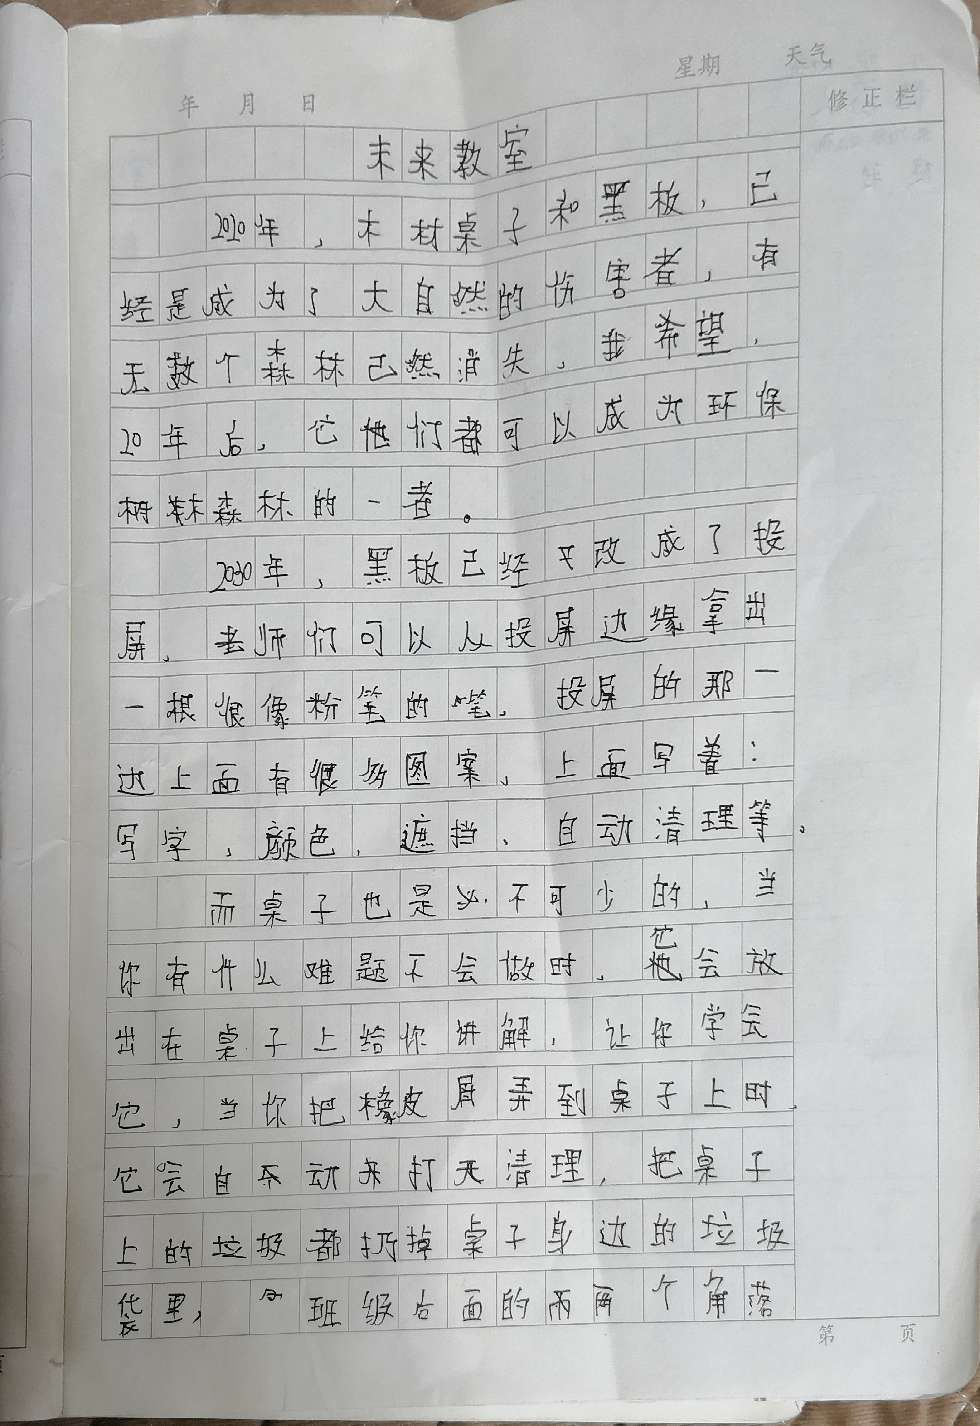 星期 天气
年 月 日
修正栏
未来教室
2020年，木材桌子和黑板，已
经是成为了大自然的伤害者，有
无数个森林已然消失，我希望，
20年后，它他们都可以成为环保
树林森林的一者。
2030年，黑板已经不改成了投
屏，老师们可以从投屏边缘拿出
一根很像粉笔的笔，投屏的那一
边上面有很多图案，上面写着：
写字，颜色，遮挡、自动清理等。
而桌子也是必不可少的，当
你有什么难题不会做时，它他会放
出在桌子上给你讲解，让你学会
它，当你把橡皮屑弄到桌子上时，
它会自不动来打无清理，把桌子
上的垃圾都扔掉桌子身边的垃圾
袋里，班级后面的两两个角落
第 页